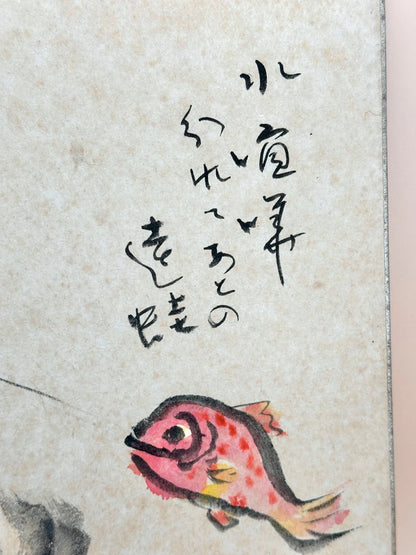 水喧嘩
分れてあとの
遠蛙